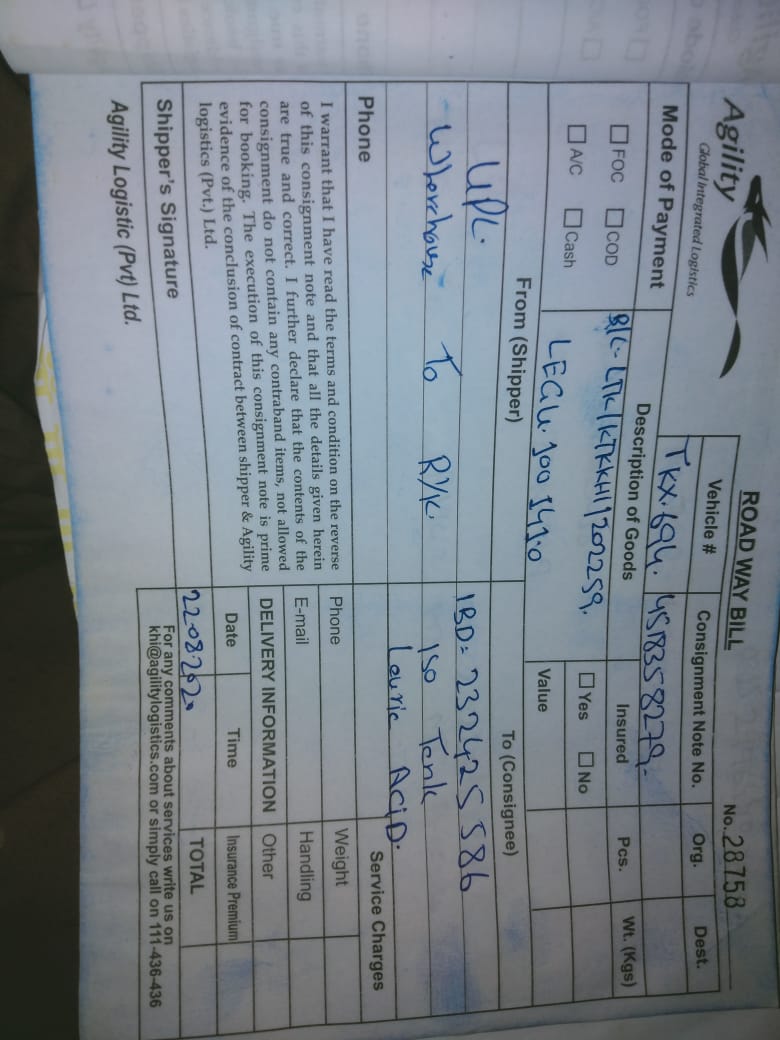 Agility
Global Integrated Logistics
ROAD WAY BILL
No. 28758
Vehicle #
Consignment Note No.
Org.
Dest.
TKX.694.
4518358279.
Mode of Payment
Description of Goods
Insured
Pcs.
Wt. (Kgs)
FOC
COD
B/L- LTK/KTKKHI/202259.
Yes
No
A/C
Cash
LEGU. 100 141.0
Value
From (Shipper)
To (Consignee)
UPL.
IBD: 232425586
Wherehouse To RYK.
Iso Tank
Lauric AciD.
Phone
Service Charges
I warrant that I have read the terms and condition on the reverse
of this consignment note and that all the details given herein
are true and correct. I further declare that the contents of the
consignment do not contain any contraband items, not allowed
for booking. The execution of this consignment note is prime
evidence of the conclusion of contract between shipper & Agility
logistics (Pvt.) Ltd.
Phone
Weight
E-mail
Handling
DELIVERY INFORMATION
Other
Date
Time
Insurance Premium
22.08.2020
TOTAL
Shipper's Signature
For any comments about services write us on
khi@agilitylogistics.com or simply call on 111-436-436
Agility Logistic (Pvt) Ltd.